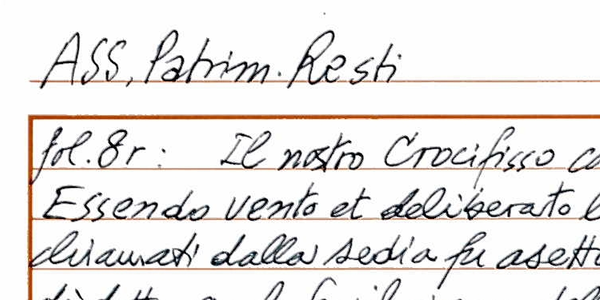 ASS, Patrim. Resti
fol. 8r: Il nostro Crocifisso
Essendo vento et deliberato
chiamati dalla sedia fu